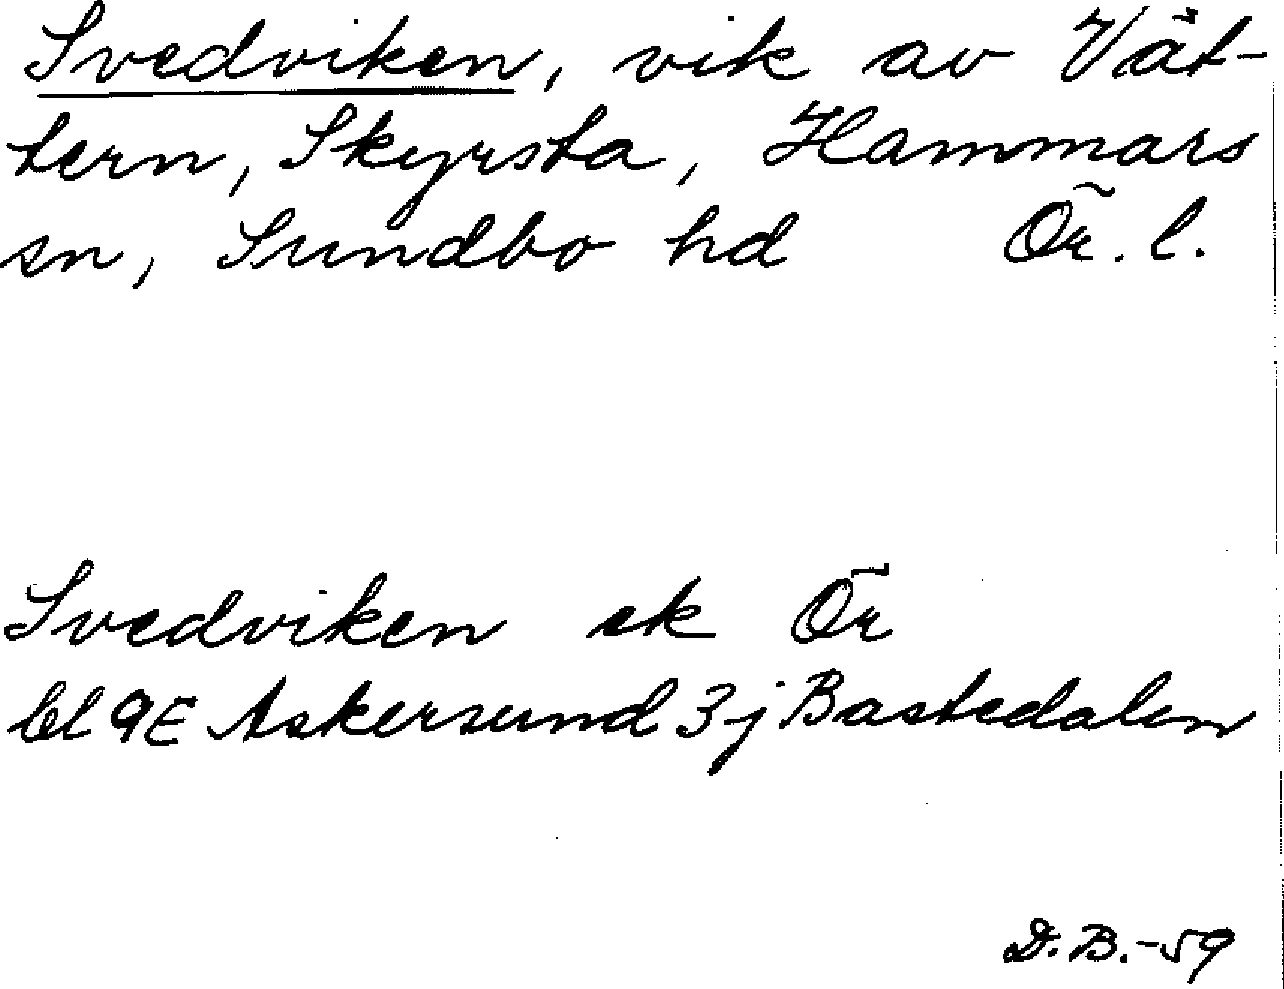 Svedviken, vik av Vät-
tern, Skyrsta, Hammars
sn, Sundbo hd Ör. l.
Svedviken ek Ör
bl 9E Askersund 3j Bastedalen
D.B.-59